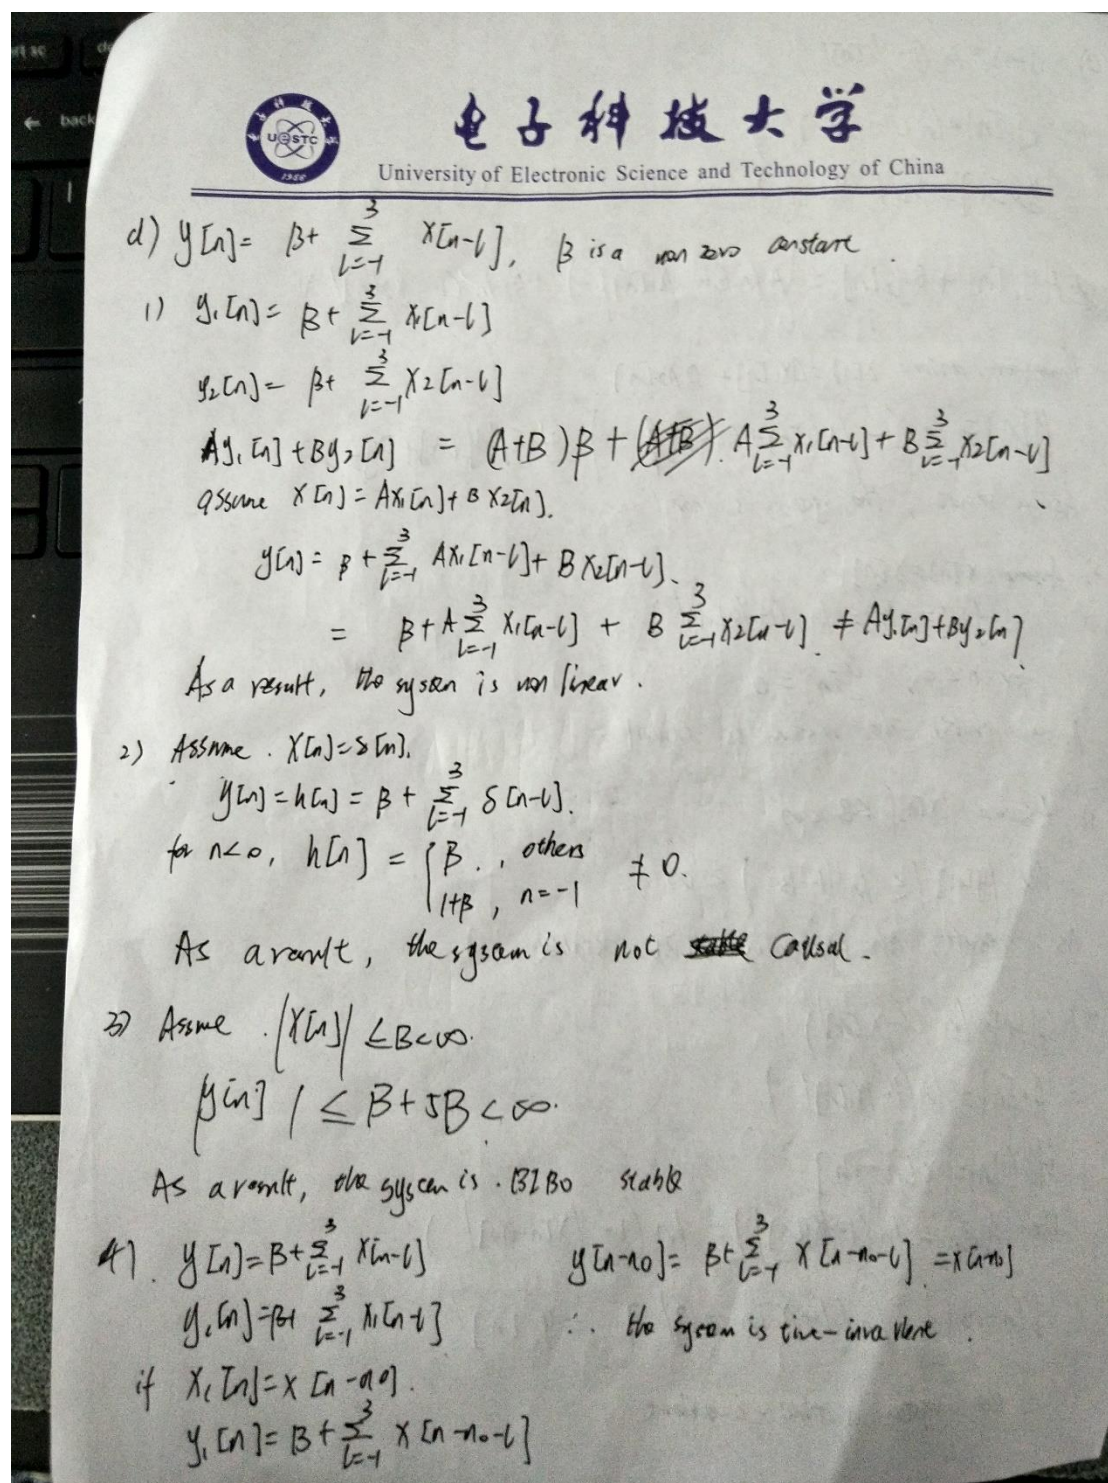 rt sc
de
← back
电子科技大学
UESTC
1956
University of Electronic Science and Technology of China
d) y[n] = β + Σ_{l=-1}^{3} x[n-l], β is a non zero constant.
1) y₁[n] = β + Σ_{l=-1}^{3} x₁[n-l]
y₂[n] = β + Σ_{l=-1}^{3} x₂[n-l]
Ay₁[n] + By₂[n] = (A+B)β + A Σ_{l=-1}^{3} x₁[n-l] + B Σ_{l=-1}^{3} x₂[n-l]
assume x[n] = Ax₁[n] + Bx₂[n].
y[n] = β + Σ_{l=-1}^{3} Ax₁[n-l] + Bx₂[n-l].
= β + A Σ_{l=-1}^{3} x₁[n-l] + B Σ_{l=-1}^{3} x₂[n-l] ≠ Ay₁[n] + By₂[n]
As a result, the system is non linear.
2) Assume. x[n] = δ[n].
y[n] = h[n] = β + Σ_{l=-1}^{3} δ[n-l].
for n<0, h[n] = { β, others ≠ 0.
1+β, n=-1
As a result, the system is not causal.
3) Assume. |x[n]| ≤ B < ∞.
|y[n]| ≤ β + 5B < ∞.
As a result, the system is. BIBO stable
4). y[n] = β + Σ_{l=-1}^{3} x[n-l] y[n-n₀] = β + Σ_{l=-1}^{3} x[n-n₀-l] = x[n-n₀]
y₁[n] = β + Σ_{l=-1}^{3} x₁[n-l] ∴ the system is time-invariant.
if x₁[n] = x[n-n₀].
y₁[n] = β + Σ_{l=-1}^{3} x[n-n₀-l]